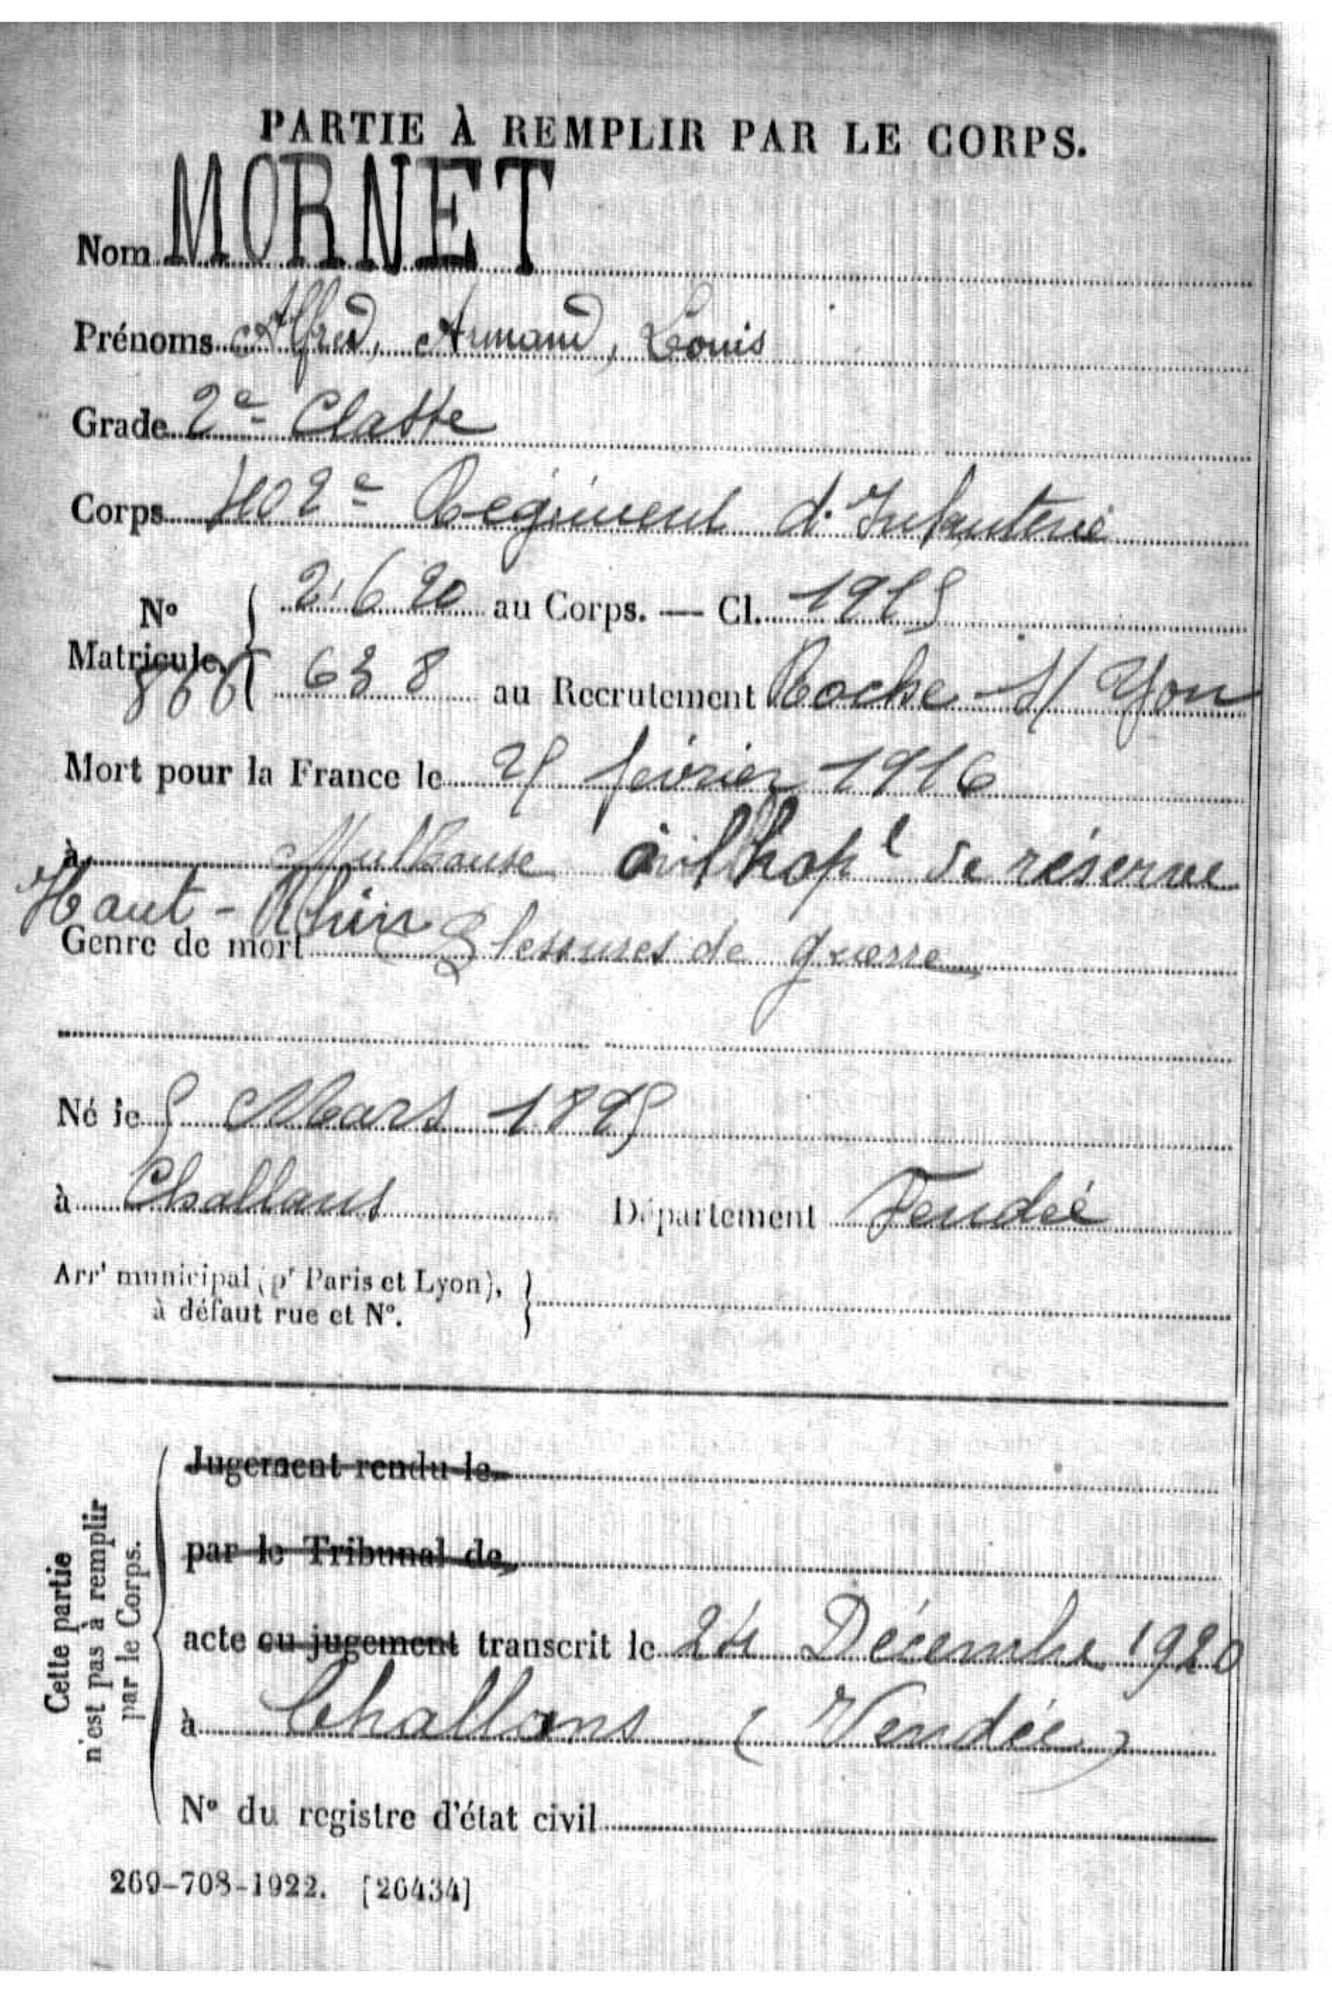 PARTIE À REMPLIR PAR LE CORPS.
Nom MORNET
Prénoms Alfred, Armand, Louis
Grade 2e Classe
Corps 402e Régiment d'Infanterie
No Matricule. { 2.620 au Corps. — Cl. 1915
866 { 638 au Recrutement Roche s/ Yon
Mort pour la France le 25 février 1916
à Mulhouse à l'hopl de réserve
Haut-Rhin
Genre de mort Blessures de guerre
Né le 5 Mars 1895
à Challans Département Vendée
Arrt municipal (pr Paris et Lyon),
à défaut rue et No.
Jugement rendu le
par le Tribunal de
acte ou jugement transcrit le 24 Décembre 1920
à Challans (Vendée)
No du registre d'état civil
Cette partie
n'est pas à remplir
par le Corps.
269-708-1922. [26434]